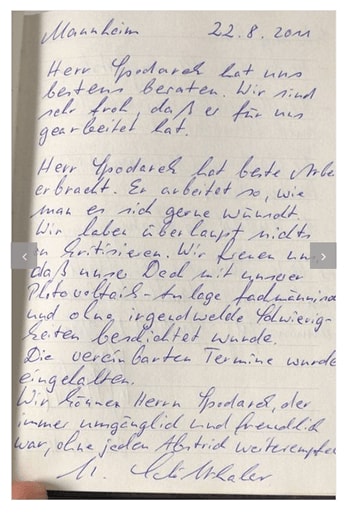 Mannheim 22.8.2011
Herr Spodarek hat uns
bestens beraten. Wir sind
sehr froh, daß er für uns
gearbeitet hat.
Herr Spodarek hat beste Arbe
erbracht. Er arbeitet so, wie
man es sich gerne wünscht.
Wir haben überhaupt nichts
zu kritisieren. Wir freuen uns
daß unser Dach mit unserer
Photovoltaik-Anlage fachmännisch
und ohne irgendwelche Schwierig-
keiten beschichtet wurde.
Die vereinbarten Termine wurde
eingehalten.
Wir können Herrn Spodarek, der
immer umgänglich und freundlich
war, ohne jeden Abstrich weiterempfe